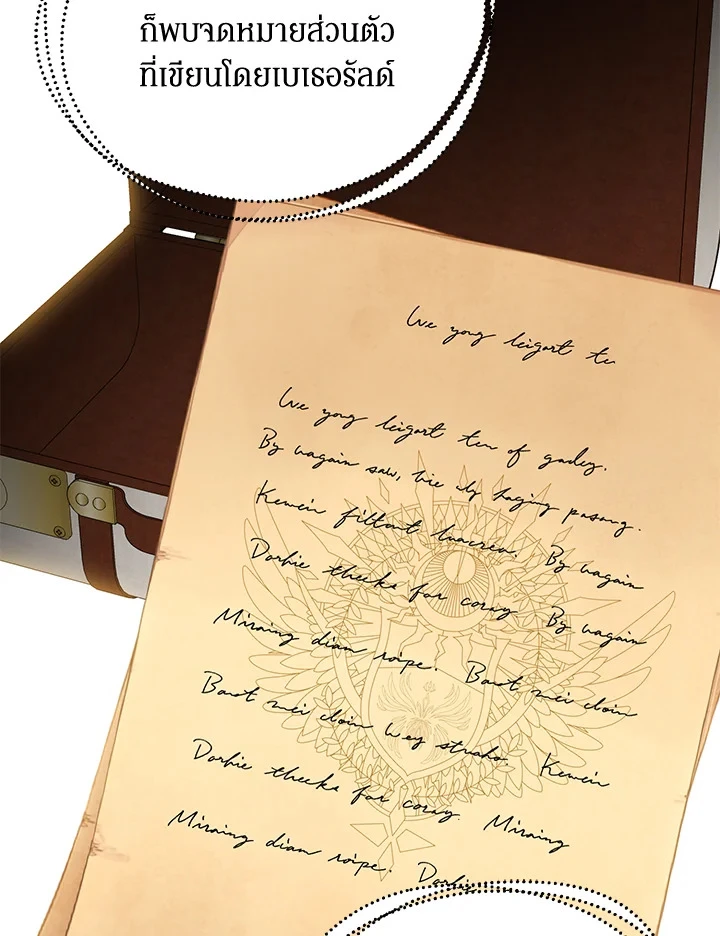 ก็พบจดหมายส่วนตัว
ที่เขียนโดยเบเธอรัลด์
We yong leigart te
We yong leigart ten of gadey.
By wagain saw, hie ily haging pasang.
Kewein filtont luacrea. By wagain
Dorhie theeks for coray By wagain
Miraing diam roipe. Baot mei cloin
Baot mei cloin wey straho. Kewein
Dorhie theeks for coray. Miraing
Miraing diam roipe. Dorhie